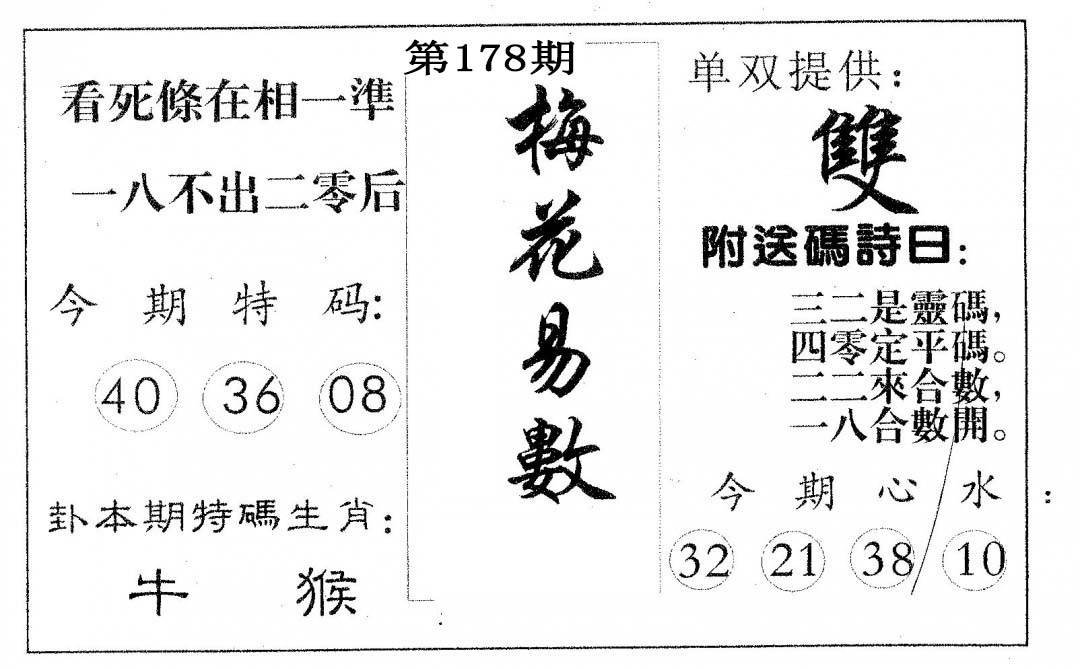 第178期
梅花易數
看死條在相一準
一八不出二零后
今期特码:
40 36 08
卦本期特碼生肖:
牛 猴
单双提供:
雙
附送碼詩曰:
三二是靈碼,
四零定平碼。
二二來合數,
一八合數開。
今期心水:
32 21 38 10